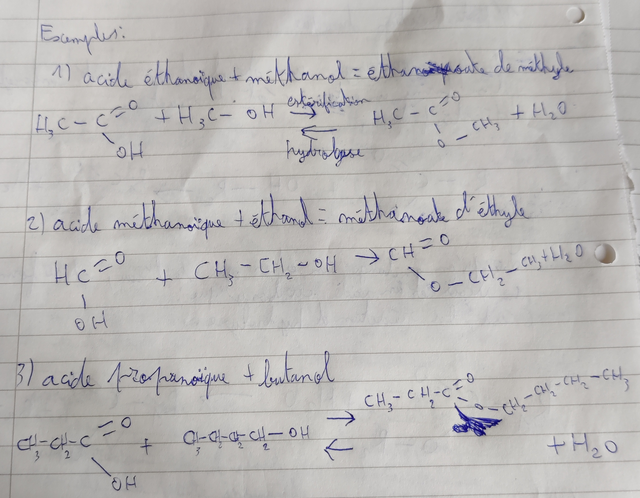 Exemples:
1) acide éthanoïque + méthanol = éthanoate de méthyle
H₃C - C = O + H₃C - OH estérification → H₃C - C = O + H₂O
OH ← hydrolyse O - CH₃
2) acide méthanoïque + éthanol = méthanoate d'éthyle
HC = O + CH₃ - CH₂ - OH → CH = O
OH O - CH₂ - CH₃ + H₂O
3) acide propanoïque + butanol
CH₃ - CH₂ - C = O O - CH₂ - CH₂ - CH₂ - CH₃
CH₃ - CH₂ - C = O + CH₃ - CH₂ - CH₂ - CH₂ - OH → ← + H₂O
OH